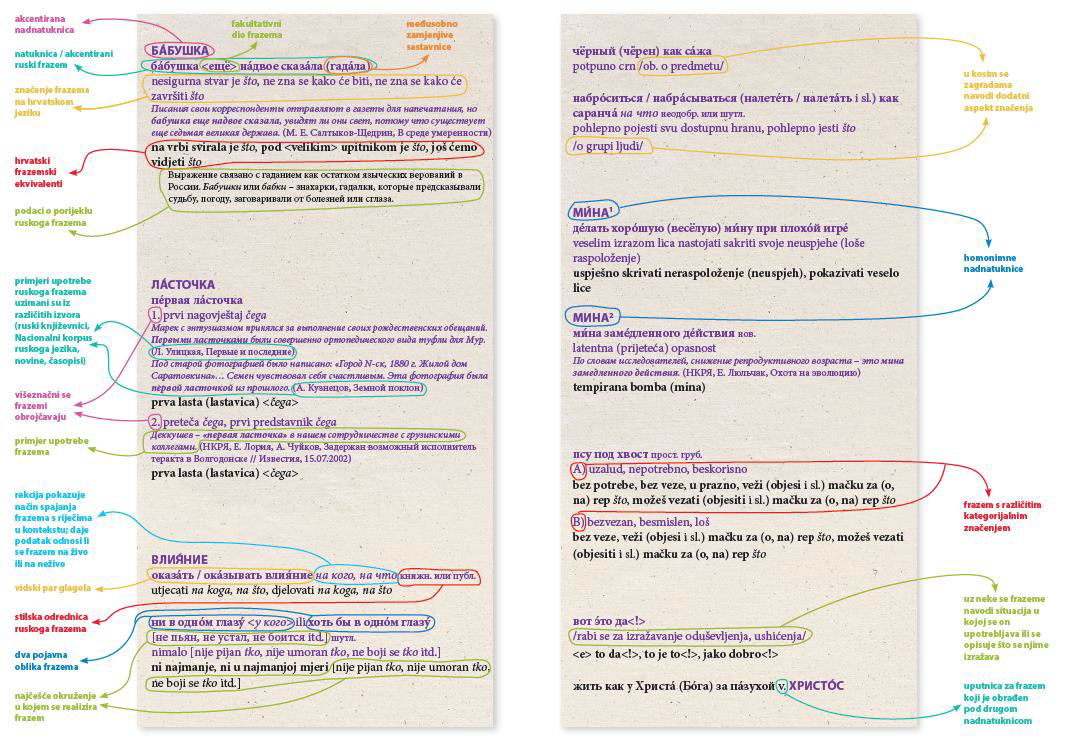 akcentirana
nadnatuknica
natuknica / akcentirani
ruski frazem
značenje frazema
na hrvatskom
jeziku
hrvatski
frazemski
ekvivalenti
podaci o porijeklu
ruskoga frazema
primjeri upotrebe
ruskoga frazema
uzimani su iz
različitih izvora
(ruski književnici,
Nacionalni korpus
ruskoga jezika,
novine, časopisi)
višeznačni se
frazemi
obrojčavaju
primjer upotrebe
frazema
rekcija pokazuje
način spajanja
frazema s riječima
u kontekstu; daje
podatak odnosi li
se frazem na živo
ili na neživo
vidski par glagola
stilska odrednica
ruskoga frazema
dva pojavna
oblika frazema
najčešće okruženje
u kojem se realizira
frazem
fakultativni
dio frazema
međusobno
zamjenjive
sastavnice
БА́БУШКА
ба́бушка <ещё> на́двое сказа́ла (гада́ла)
nesigurna stvar je što, ne zna se kako će biti, ne zna se kako će
završiti što
Писания свои корреспонденты отправляют в газеты для напечатания, но
бабушка еще надвое сказала, увидят ли они свет, потому что существует
еще седьмая великая держава. (М. Е. Салтыков-Щедрин, В среде умеренности)
na vrbi svirala je što, pod <velikim> upitnikom je što, još ćemo
vidjeti što
Выражение связано с гаданием как остатком языческих верований в
России. Бабушки или бабки – знахарки, гадалки, которые предсказывали
судьбу, погоду, заговаривали от болезней или сглаза.
ЛА́СТОЧКА
пе́рвая ла́сточка
1. prvi nagovještaj čega
Марек с энтузиазмом принялся за выполнение своих рождественских обещаний.
Первыми ласточками были совершенно ортопедического вида туфли для Мур.
(Л. Улицкая, Первые и последние)
Под старой фотографией было написано: «Город N-ск, 1880 г. Жилой дом
Саратовкина»… Семен чувствовал себя счастливым. Эта фотография была
первой ласточкой из прошлого. (А. Кузнецов, Земной поклон)
prva lasta (lastavica) <čega>
2. preteča čega, prvi predstavnik čega
Деккушев – «первая ласточка» в нашем сотрудничестве с грузинскими
коллегами. (НКРЯ, Е. Лория, А. Чуйков, Задержан возможный исполнитель
теракта в Волгодонске // Известия, 15.07.2002)
prva lasta (lastavica) <čega>
ВЛИЯ́НИЕ
оказа́ть / ока́зывать влия́ние на кого, на что книжн. или публ.
utjecati na koga, na što, djelovati na koga, na što
ни в одно́м глазу́ <у кого> ili хоть бы в одно́м глазу́
[не пьян, не устал, не боится itd.] шутл.
nimalo [nije pijan tko, nije umoran tko, ne boji se tko itd.]
ni najmanje, ni u najmanjoj mjeri [nije pijan tko, nije umoran tko,
ne boji se tko itd.]
чёрный (чёрен) как са́жа
potpuno crn /ob. o predmetu/
набро́ситься / набра́сываться (налете́ть / налета́ть i sl.) как
саранча́ на что неодобр. или шутл.
pohlepno pojesti svu dostupnu hranu, pohlepno jesti što
/o grupi ljudi/
МИ́НА¹
де́лать хоро́шую (весёлую) ми́ну при плохо́й игре́
veselim izrazom lica nastojati sakriti svoje neuspjehe (loše
raspoloženje)
uspješno skrivati neraspoloženje (neuspjeh), pokazivati veselo
lice
МИНА²
ми́на заме́дленного де́йствия нов.
latentna (prijeteća) opasnost
По словам исследователей, снижение репродуктивного возраста – это мина
замедленного действия. (НКРЯ, Е. Люльчак, Охота на эволюцию)
tempirana bomba (mina)
псу под хвост прост. груб.
A) uzalud, nepotrebno, beskorisno
bez potrebe, bez veze, u prazno, veži (objesi i sl.) mačku za (o,
na) rep što, možeš vezati (objesiti i sl.) mačku za (o, na) rep što
B) bezvezan, besmislen, loš
bez veze, veži (objesi i sl.) mačku za (o, na) rep što, možeš vezati
(objesiti i sl.) mačku za (o, na) rep što
вот э́то да<!>
/rabi se za izražavanje oduševljenja, ushićenja/
<e> to da<!>, to je to<!>, jako dobro<!>
жить как у Христа́ (Бо́га) за па́зухой v. ХРИСТО́С
u kosim se
zagradama
navodi dodatni
aspekt značenja
homonimne
nadnatuknice
frazem s različitim
kategorijalnim
značenjem
uz neke se frazeme
navodi situacija u
kojoj se on
upotrebljava ili se
opisuje što se njime
izražava
uputnica za frazem
koji je obrađen
pod drugom
nadnatuknicom